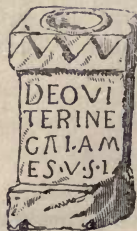 DEOVI
TERINE
CAI·AM
ES·V·S·L